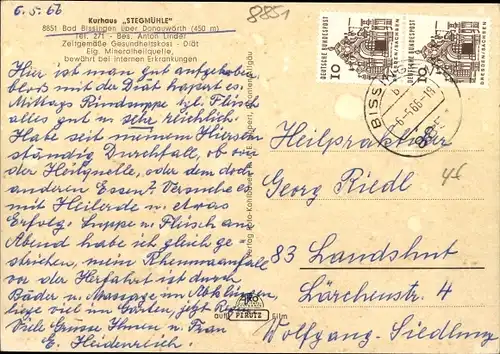 6.5.66
8851
Kurhaus „STEGMÜHLE“
8851 Bad Bissingen über Donauwörth (450 m)
Tel. 271 - Bes. Anton Linder
Zeitgemäße Gesundheitskost - Diät
Eig. Mineralheilquelle,
bewährt bei internen Erkrankungen
Hier ist man gut aufgehoben
bloß mit der Diät hapert es.
Mittags Rindsuppe bzl. Fleisch
alles gut u sehr reichlich.
Habe seit meinem Hiersein
ständig Durchfall, ob von
der Heilquelle, oder dem
anderen Essen? Versuche es
mit Heilerde u etwas
Erfolg. Suppe u Fleisch am
Abend habe ich gleich ge-
strichen, mein Rheumaanfall
vor der Herfahrt ist durch
Bäder u Massage im Abklingen
liege viel im Garten, jetzt
Viele Grüsse Ihnen u Frau
E. Heidenreich.
DEUTSCHE BUNDESPOST
10
DRESDEN/SACHSEN
DEUTSCHE BUNDESPOST
10
DRESDEN/SACHSEN
BISSINGEN
-6.-5.66-18
Heilpraktiker
Georg Riedl
83 Landshut
Lärchenstr. 4
Wolfgang-Siedlung
auf PERUTZ Film